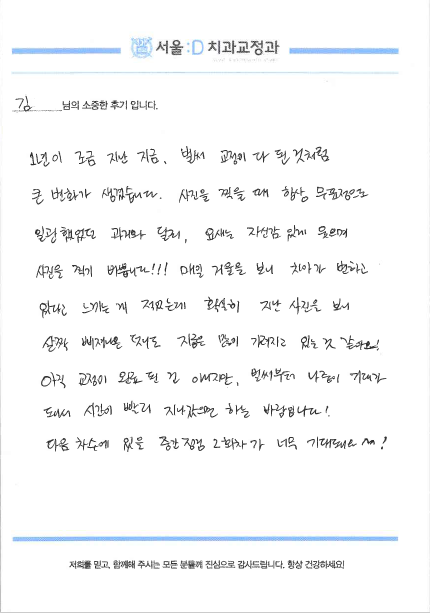 서울:D 치과교정과
김 님의 소중한 후기 입니다.
1년이 조금 지난 지금, 벌써 교정이 다 된것처럼
큰 변화가 생겼습니다. 사진을 찍을 때 항상 무표정으로
일관했었던 과거와 달리, 요새는 자신감 있게 웃으며
사진을 찍기 바쁩니다!!! 매일 거울을 보니 치아가 변하고
있다고 느끼는게 적었는데 확실히 지난 사진을 보니
살짝 삐져나온 덧니도 지금은 많이 가려지고 있는 것 같아요!
아직 교정이 완료 된 건 아니지만, 벌써부터 나름의 기대가
되어서 시간이 빨리 지나갔으면 하는 바람입니다!
다음 차수에 있을 중간점검 2회차가 너무 기대돼요 ~!
저희를 믿고, 함께해 주시는 모든 분들께 진심으로 감사드립니다. 항상 건강하세요!